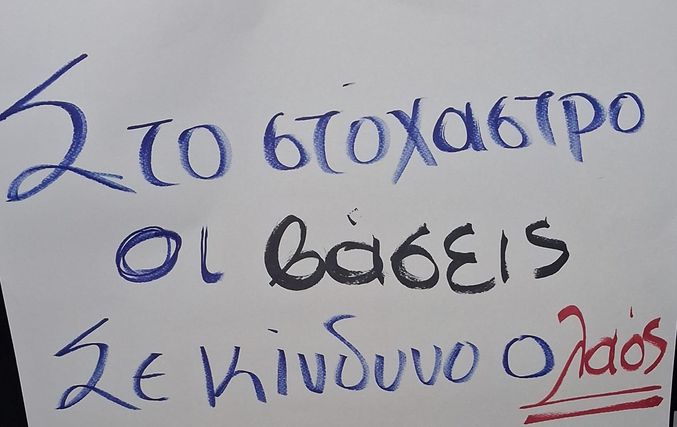 Στο στόχαστρο
οι βάσεις
Σε κίνδυνο ο λαός